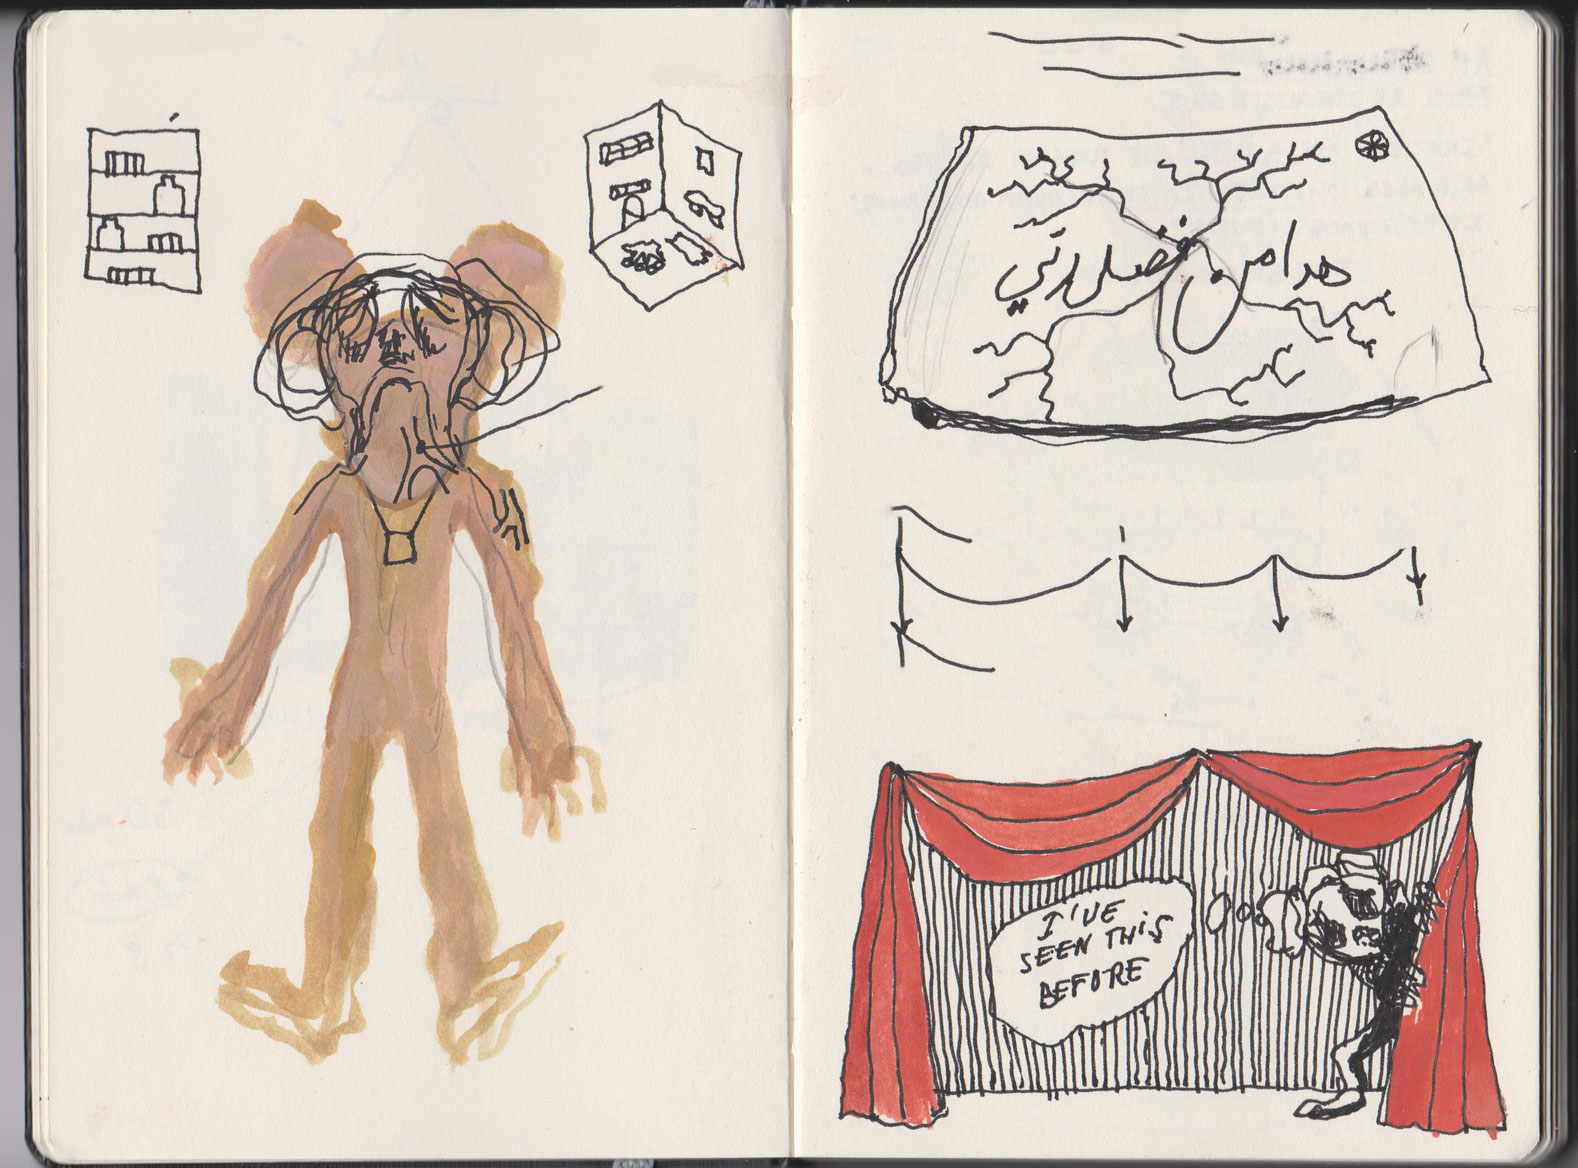 هدا من فضل ربي
I'VE
SEEN THiS
BEFORE